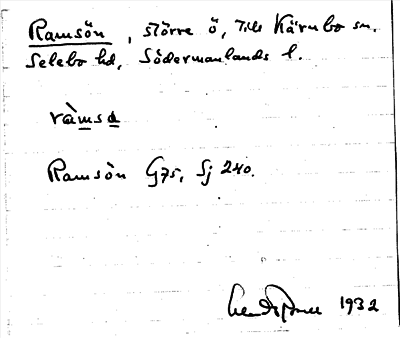 Ramsön, större ö, till Kärnbo sn.
Selebo hd, Södermanlands l.
ràmsa
Ramsön G75, Sj 240.
1932